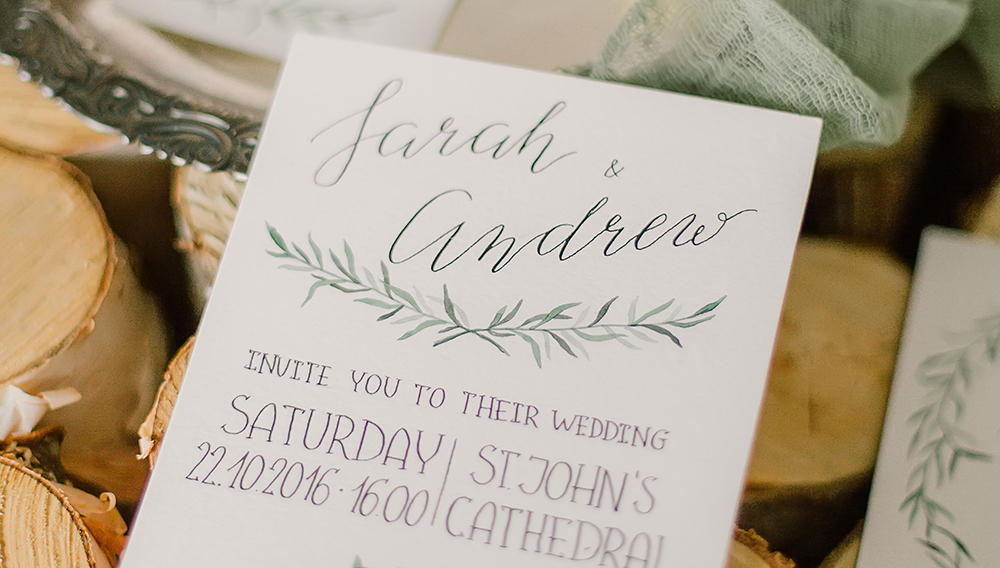 Sarah
&
Andrew
INVITE YOU TO THEIR WEDDING
SATURDAY
22.10.2016 · 16.00
ST. JOHN'S
CATHEDRAL